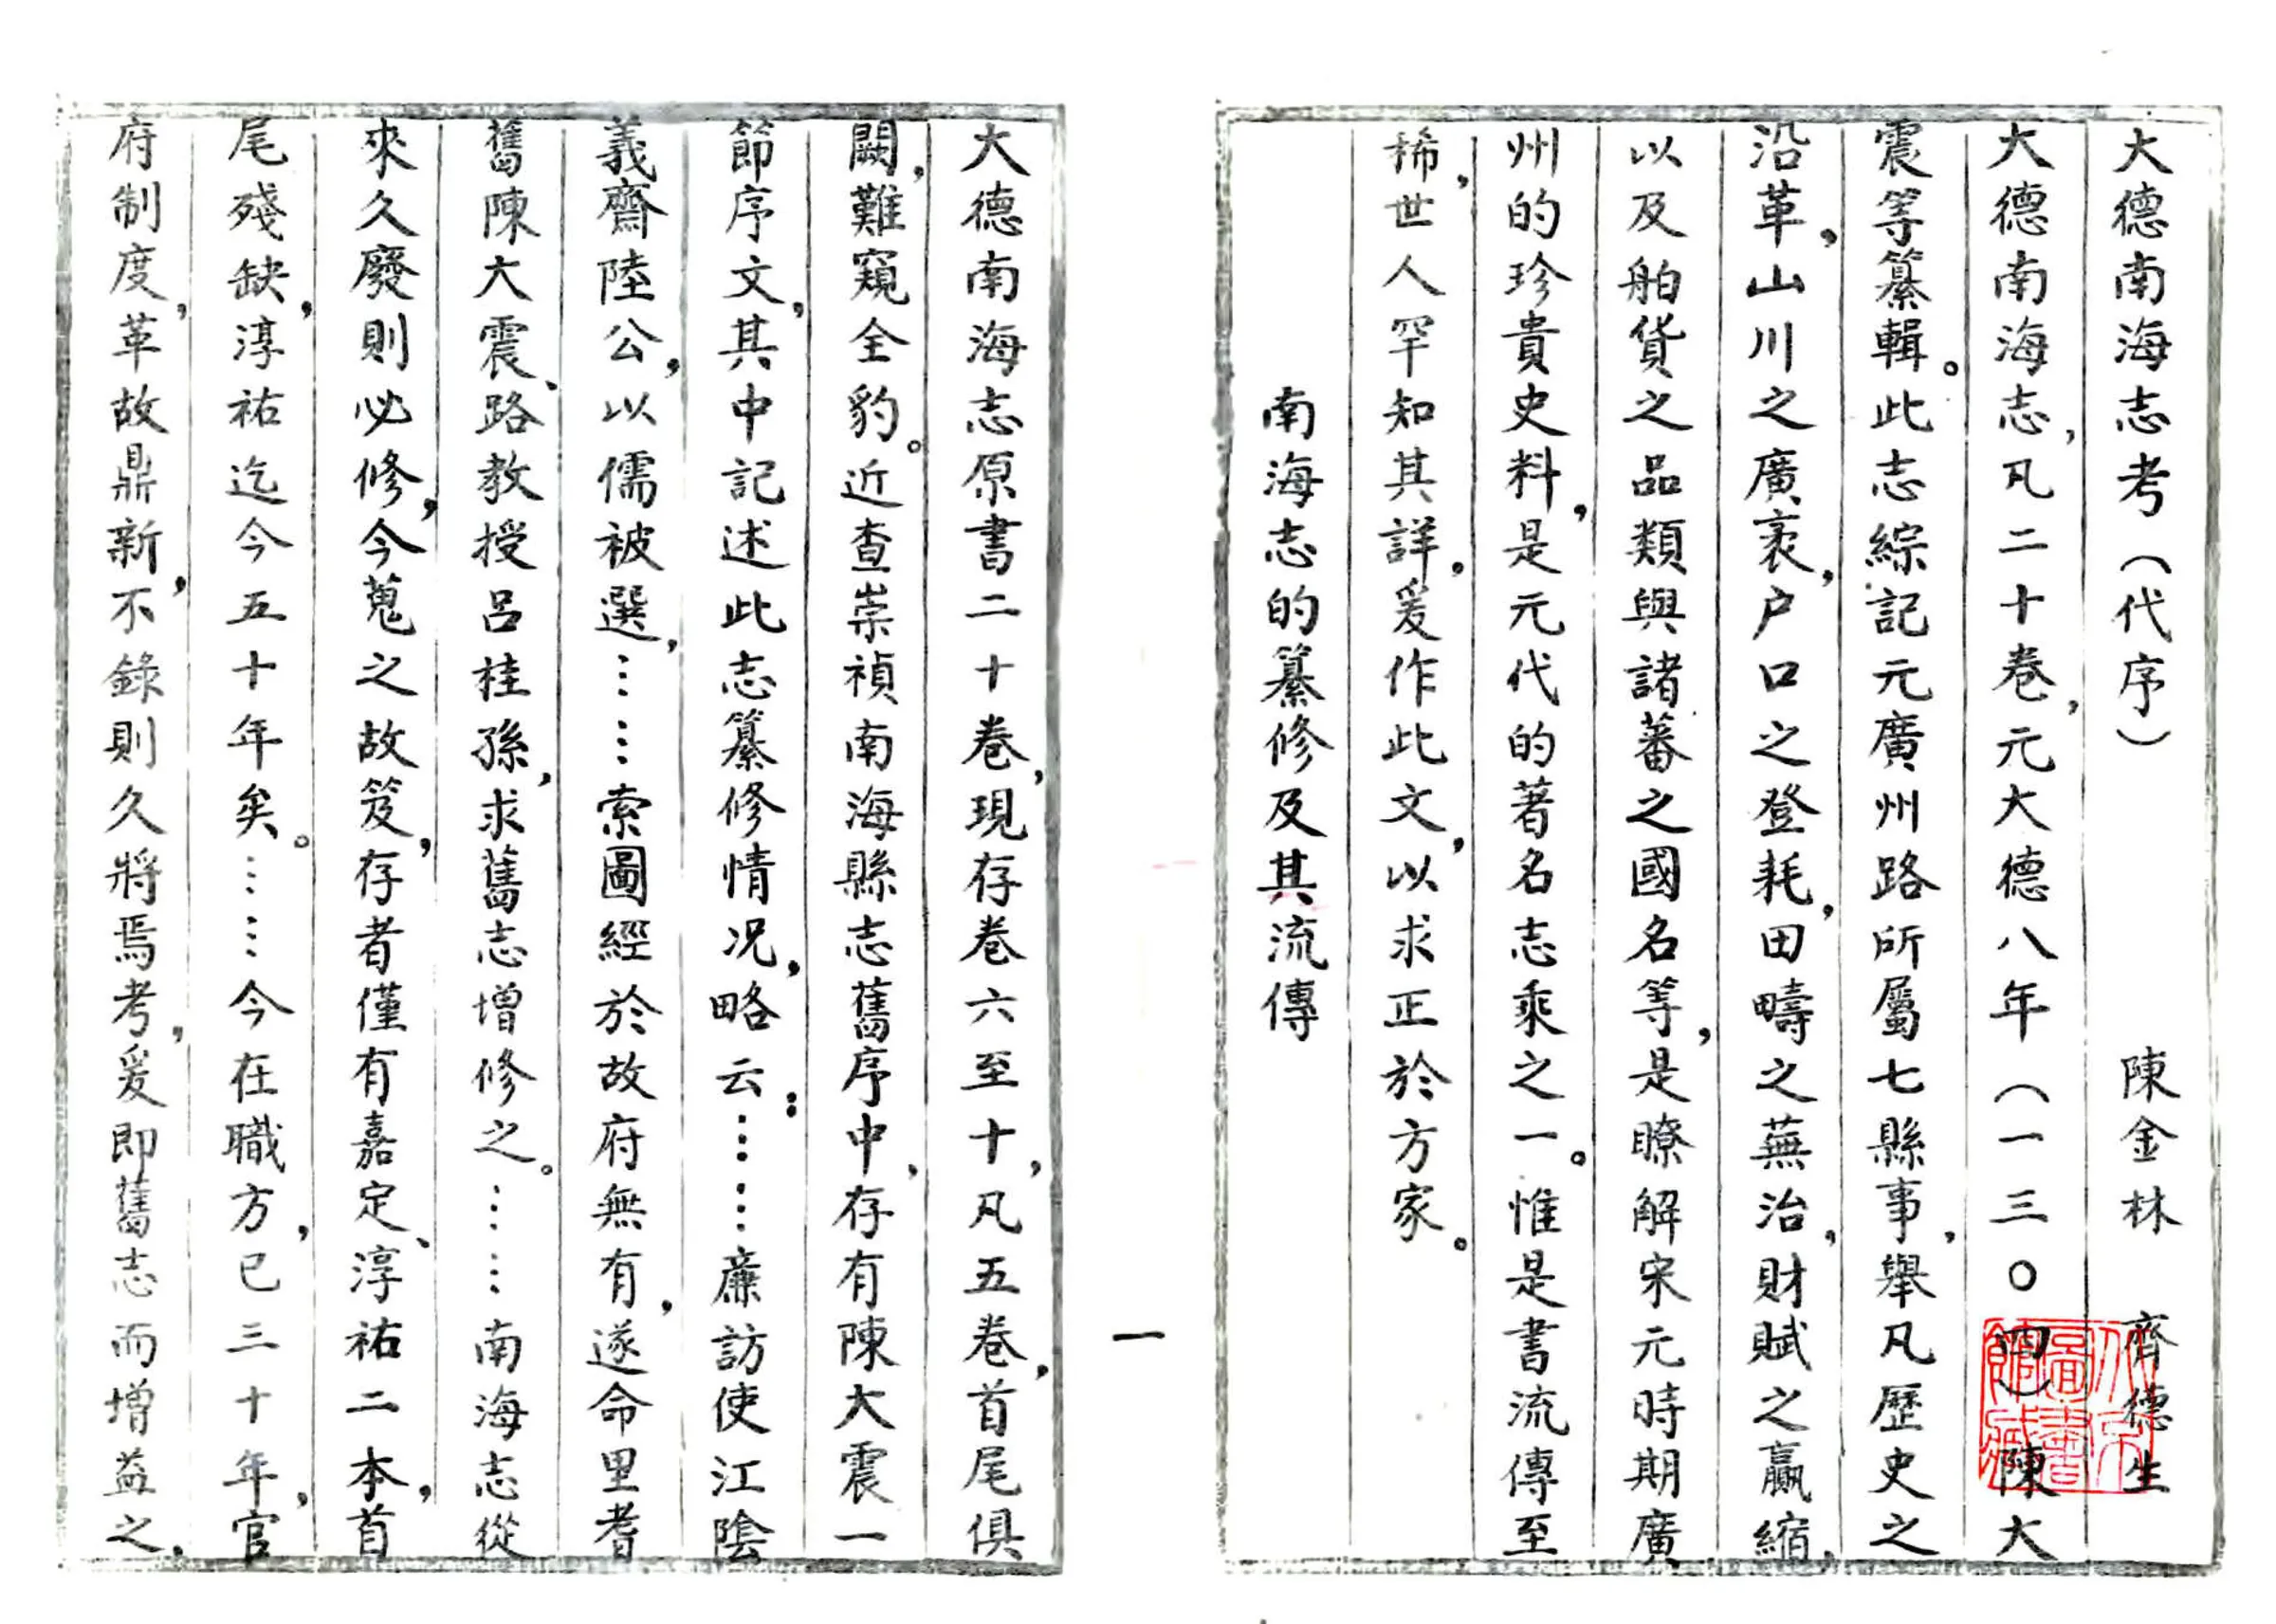 大德南海志考（代序）　　陳金林　齊德生
大德南海志，凡二十卷，元大德八年（一三〇四）陳大
震等纂輯。此志綜記元廣州路所屬七縣事，舉凡歷史之
沿革，山川之廣袤，户口之登耗，田疇之蕪治，財賦之贏縮，
以及舶貨之品類與諸蕃之國名等，是瞭解宋元時期廣
州的珍貴史料，是元代的著名志乘之一。惟是書流傳至
稀，世人罕知其詳。爰作此文，以求正於方家。
南海志的纂修及其流傳
一
大德南海志原書二十卷，現存卷六至十，凡五卷，首尾俱
闕，難窺全豹。近查崇禎南海縣志舊序中，存有陳大震一
節序文，其中記述此志纂修情况，略云：……廉訪使江陰
義齋陸公，以儒被選，……索圖經於故府無有，遂命里耆
舊陳大震、路教授呂桂孫，求舊志增修之。……南海志從
來久廢則必修，今蒐之故笈，存者僅有嘉定、淳祐二本，首
尾殘缺，淳祐迄今五十年矣。……今在職方，已三十年，官
府制度，革故鼎新，不錄則久將焉考，爰即舊志而增益之，
北京圖書館藏